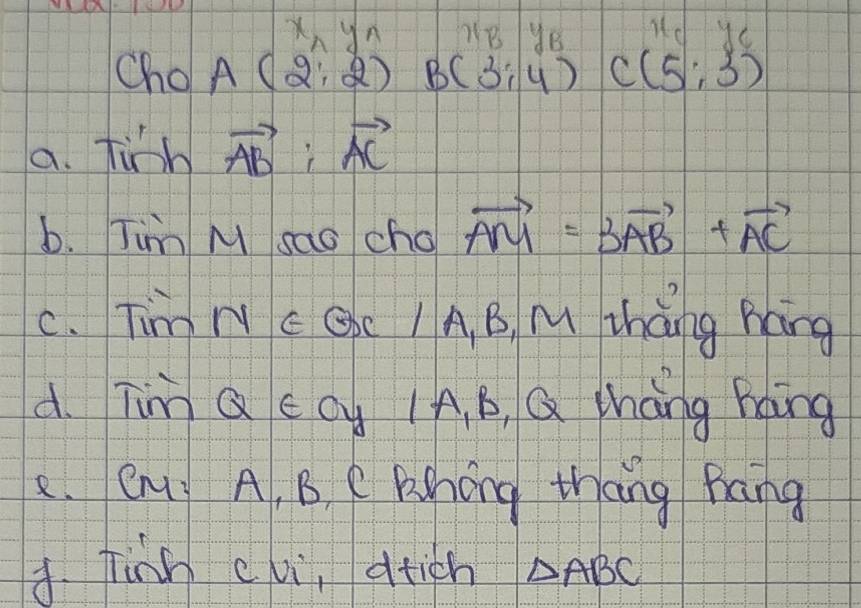 x_A y_A x_B y_B x_C y_C
Cho A (2; 2) B(3; 4) C(5; 3)
a. Tính \overrightarrow{AB} ; \overrightarrow{AC}
b. Tìm M sao cho \overrightarrow{AM} = 3\overrightarrow{AB} + \overrightarrow{AC}
c. Tìm N ∈ Ox / A, B, M thẳng hàng
d. Tìm Q ∈ Oy / A, B, Q thẳng hàng
e. CM: A, B, C không thẳng hàng
f. Tính cvi, dtích ΔABC